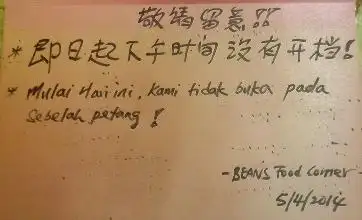 敬请留意!!
* 即日起下午时间没有开档!
* Mulai Hari ini, kami tidak buka pada
sebelah petang!
- BEANS Food Corner -
5/4/2014